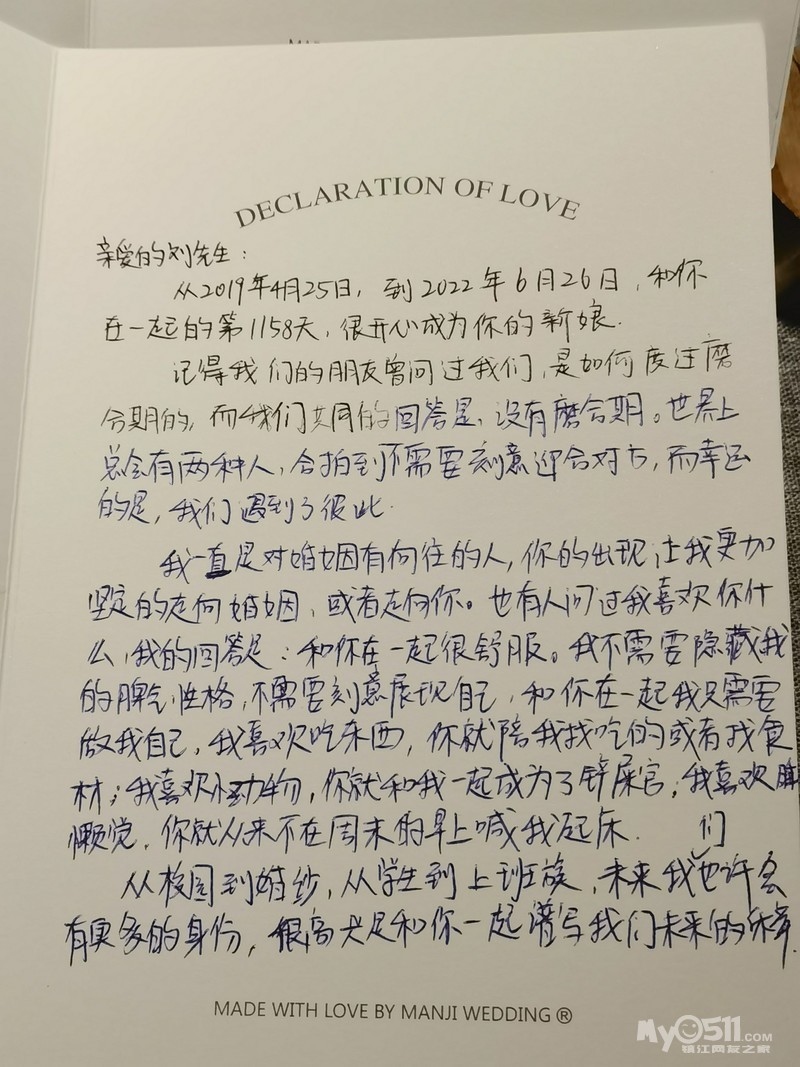 DECLARATION OF LOVE
亲爱的刘先生：
从2019年4月25日，到2022年6月26日，和你
在一起的第1158天，很开心成为你的新娘.
记得我们的朋友曾问过我们，是如何度过磨
合期的，而我们共同的回答是，没有磨合期。世界上
总会有两种人，合拍到不需要刻意迎合对方，而幸运
的是，我们遇到了彼此.
我一直是对婚姻有向往的人，你的出现让我更加
坚定的走向婚姻，或者走向你。也有人问过我喜欢你什
么，我的回答是：和你在一起很舒服。我不需要隐藏我
的脾气性格，不需要刻意展现自己，和你在一起我只需要
做我自己，我喜欢吃东西，你就陪我找吃的或者找食
材；我喜欢小动物，你就和我一起成为了铲屎官；我喜欢睡
懒觉，你就从来不在周末的早上喊我起床.
从校园到婚纱，从学生到上班族，未来我们也许会
有更多的身份，很高兴是和你一起谱写我们未来的
MADE WITH LOVE BY MANJI WEDDING ®
My0511.COM
镇江网友之家